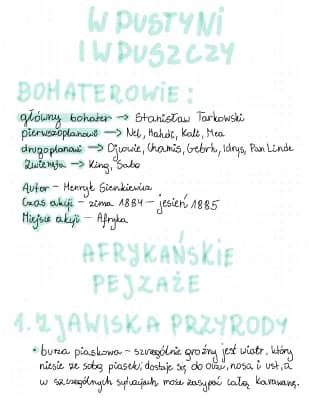 W PUSTYNI
I W PUSZCZY
BOHATEROWIE:
główny bohater → Stanisław Tarkowski
pierwszoplanowe → Nel, Mahdi, Kali, Mea
drugoplanowi → Ojcowie, Chamis, Gebhr, Idrys, Pan Linde
Zwierzęta → King, Saba
Autor - Henryk Sienkiewicz
Czas akcji - zima 1884 - jesień 1885
Miejsce akcji - Afryka
AFRYKAŃSKIE
PEJZAŻE
1. ZJAWISKA PRZYRODY
• burza piaskowa - szczególnie groźny jest wiatr, który
niesie ze sobą piasek; dostaje się do oczu, nosa i ust, a
w szczególnych sytuacjach może zasypać całą karawanę.